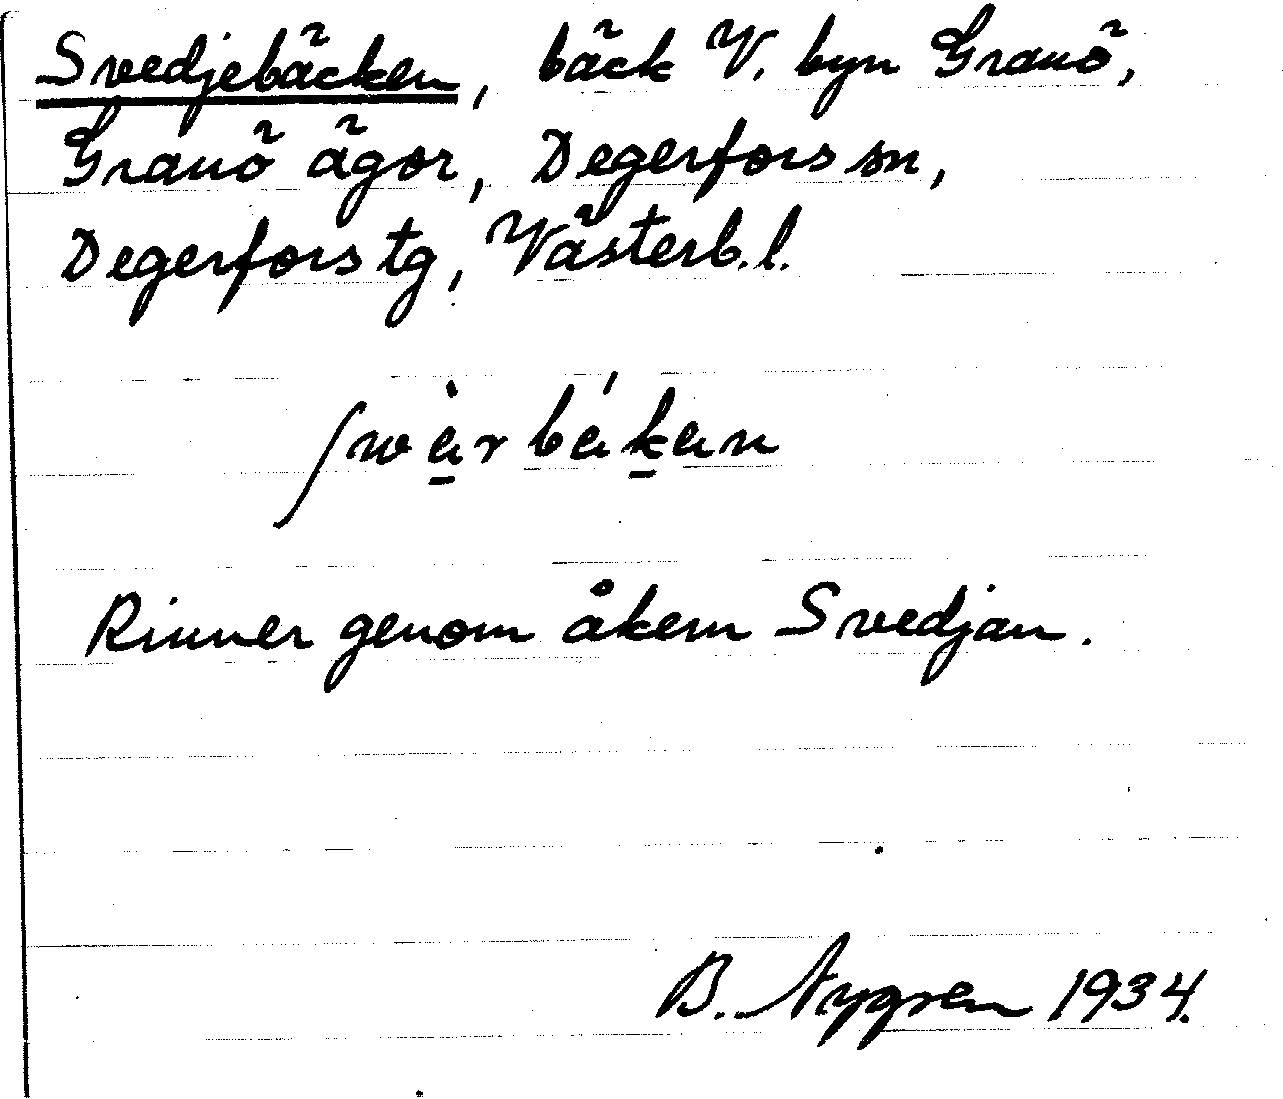 Svedjebäcken, bäck V. byn Granö,
Granö ägor, Degerfors sn,
Degerfors tg, Västerb. l.
ʃwèr béken
Rinner genom åkern Svedjan.
B. Nygren 1934.